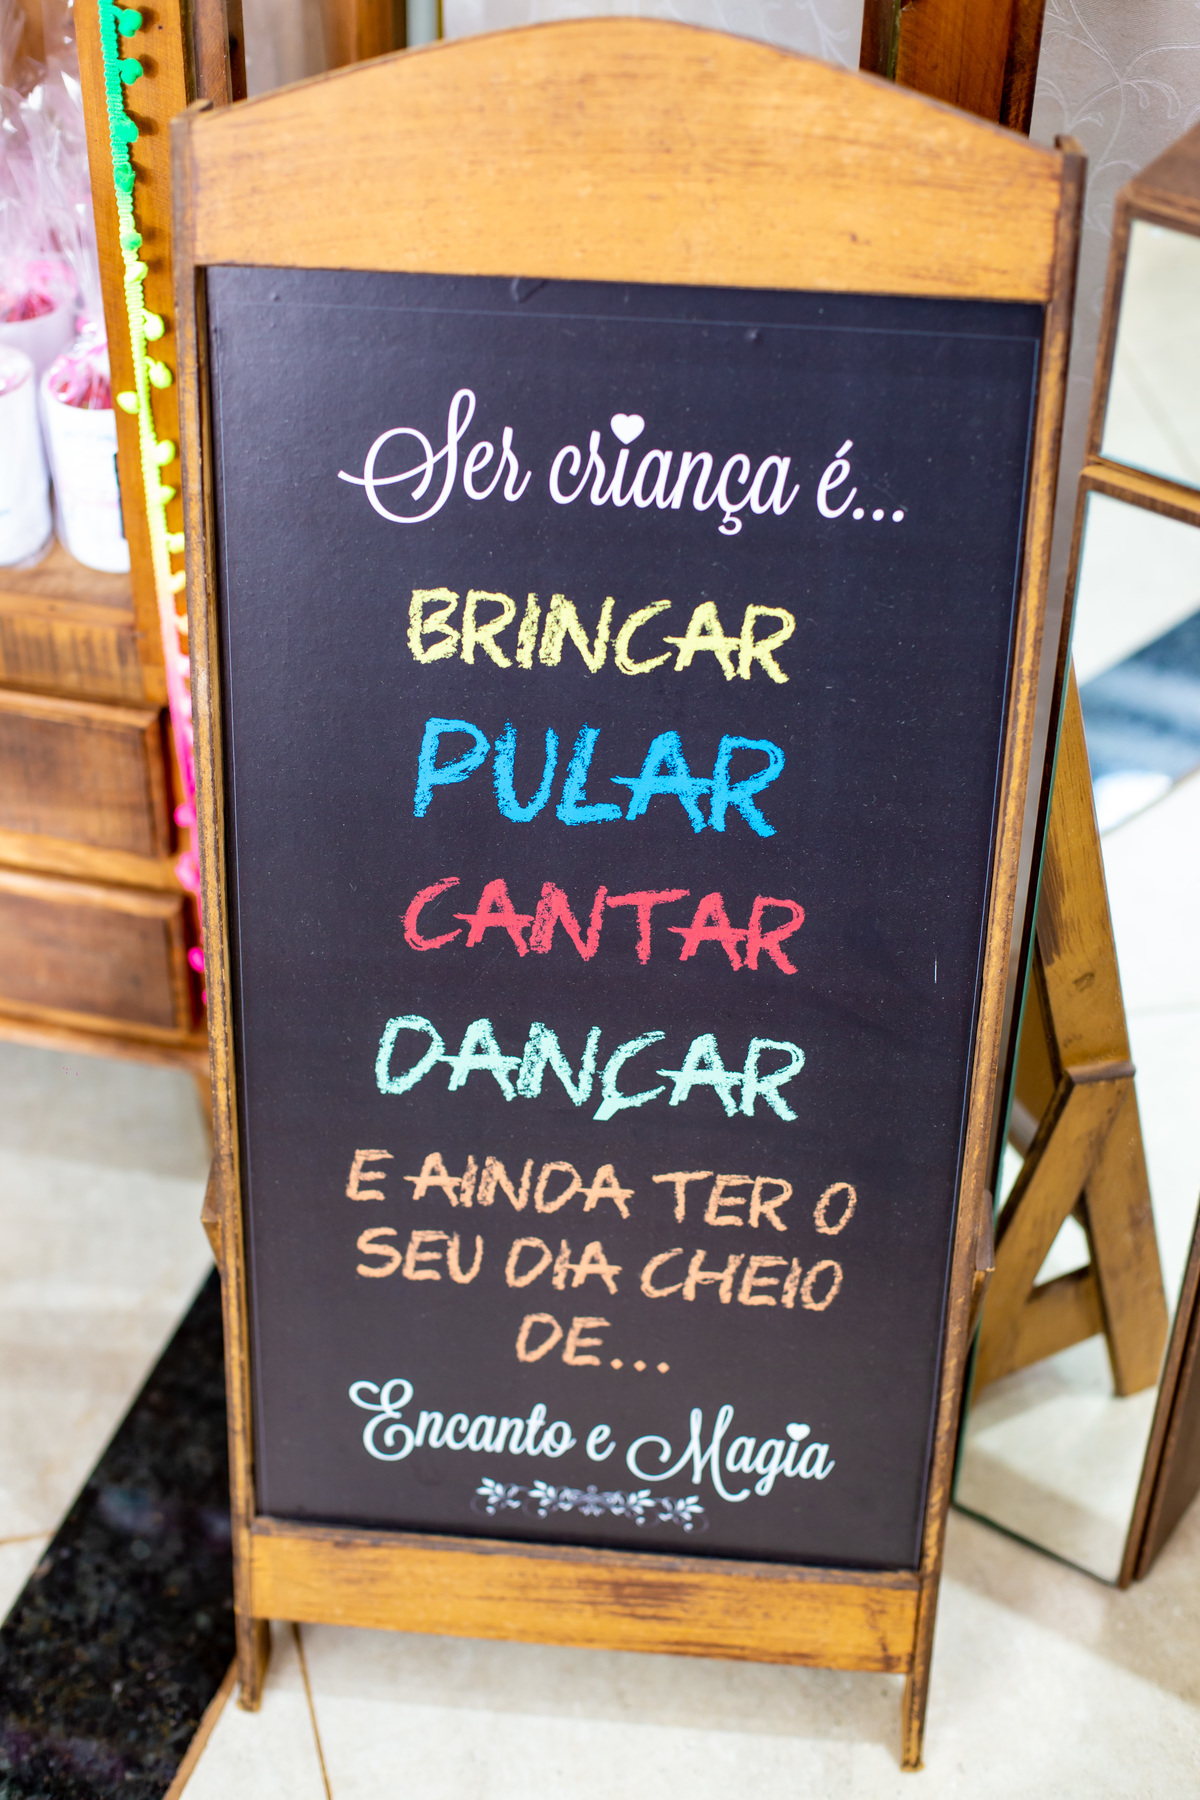 Ser criança é...
BRINCAR
PULAR
CANTAR
DANÇAR
E AINDA TER O
SEU DIA CHEIO
DE...
Encanto e Magia